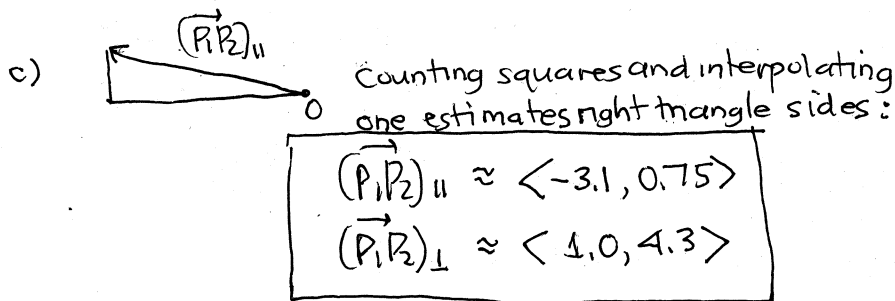 (P₁P₂)∥
c)
O
Counting squares and interpolating
one estimates right triangle sides:
(P₁P₂)∥ ≈ <-3.1, 0.75>
(P₁P₂)⊥ ≈ <1.0, 4.3>